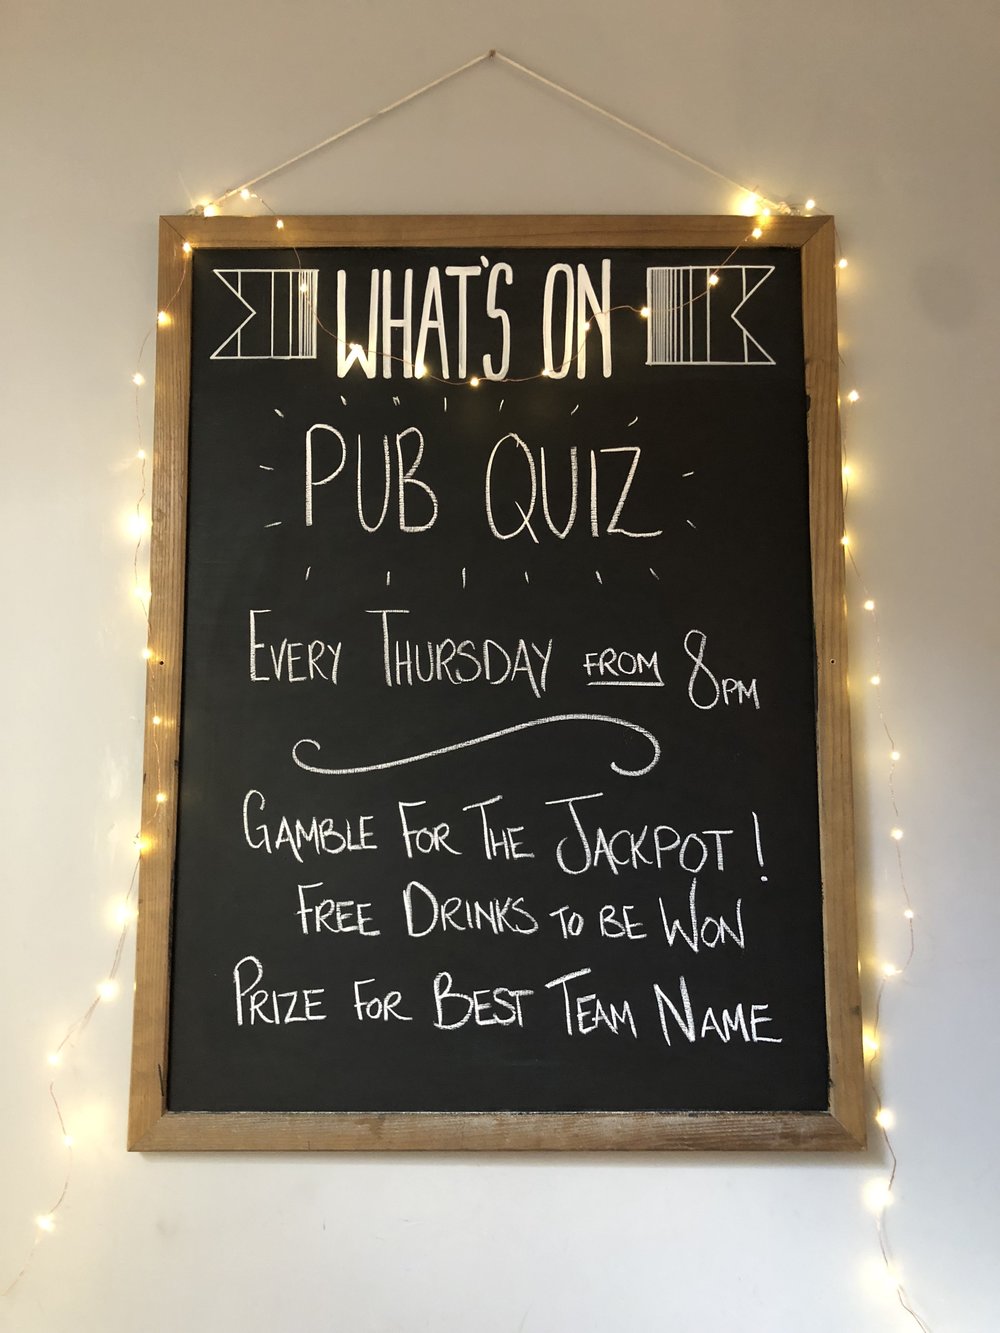 WHAT'S ON
PUB QUIZ
EVERY THURSDAY FROM 8PM
GAMBLE FOR THE JACKPOT!
FREE DRINKS TO BE WON
PRIZE FOR BEST TEAM NAME